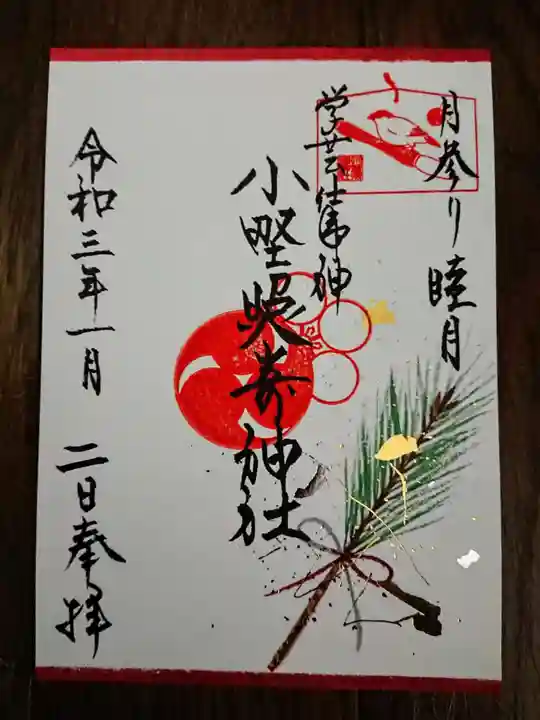 月参り 睦月
学芸仕事神
小野照崎神社
令和三年一月 二日奉拝